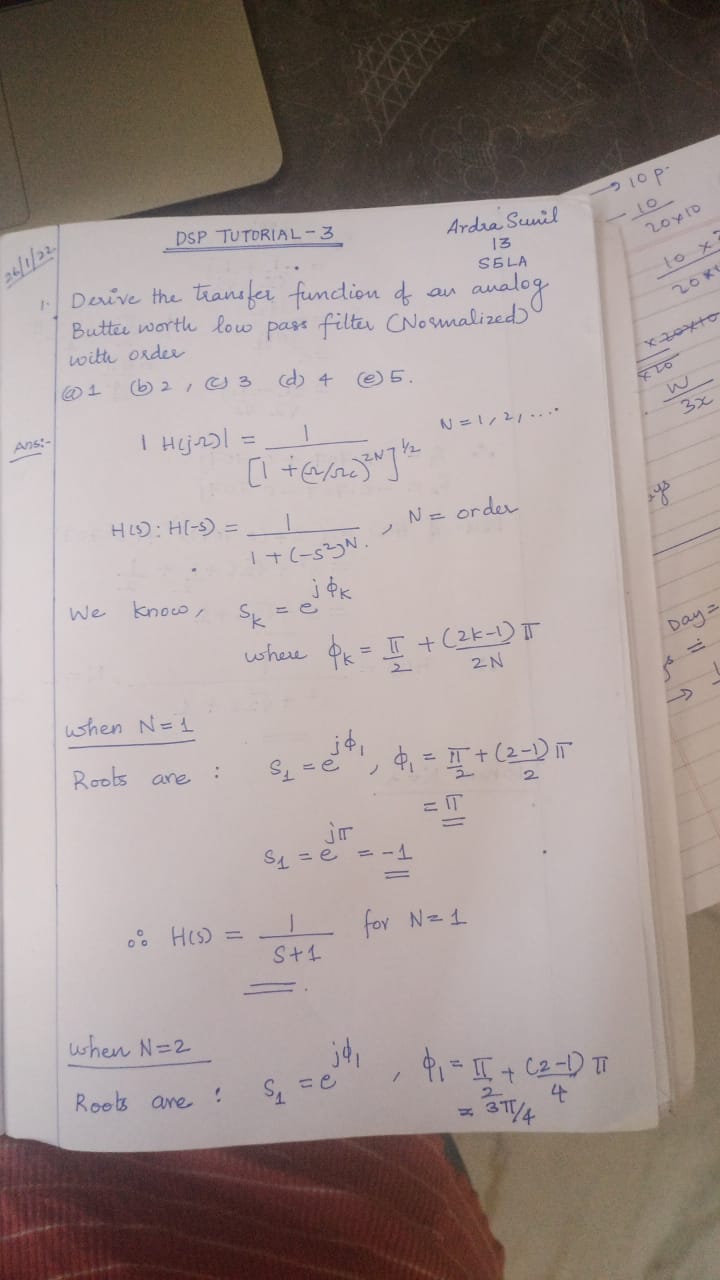 DSP TUTORIAL-3
Ardra Sunil
13
S5LA
26/1/22
1. Derive the transfer function of an analog
Butter worth low pass filter (Normalized)
with order
(a) 1 (b) 2, (c) 3 (d) 4 (e) 5.
Ans:- |H(jΩ)| = 1 / [1 + (Ω/Ωc)^2N]^1/2 N=1,2,....
H(s): H(-s) = 1 / 1+(-s²)^N. , N= order
We know, S_k = e^jϕ_k
where ϕ_k = π/2 + (2k-1)π / 2N
when N=1
Roots are : S_1 = e^jϕ_1 , ϕ_1 = π/2 + (2-1)π / 2
= π
S_1 = e^jπ = -1
∴ H(s) = 1 / S+1 for N=1
when N=2
Roots are : S_1 = e^jϕ_1 , ϕ_1 = π/2 + (2-1)π / 4
= 3π/4
→ 10 p.
10 / 20×10
W / 3x
Day =